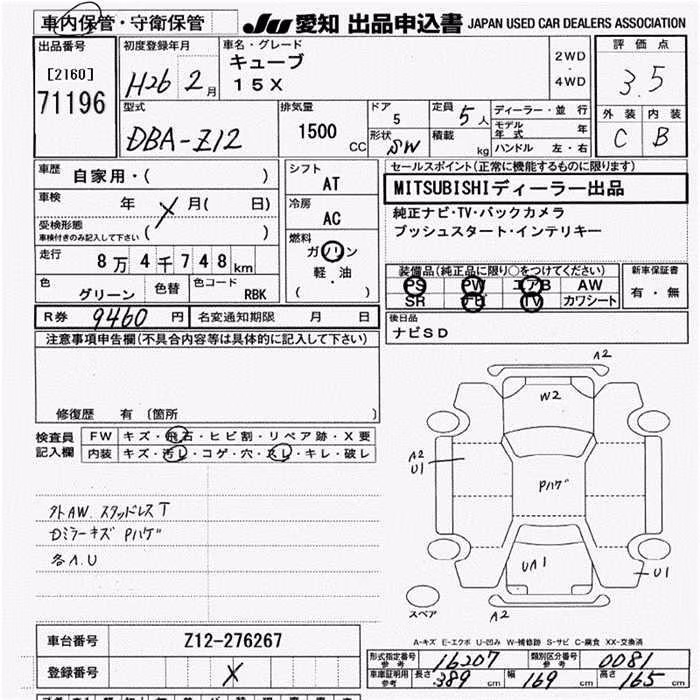 車内保管・守衛保管
JU 愛知 出品申込書 JAPAN USED CAR DEALERS ASSOCIATION
出品番号
[2160]
71196
初度登録年月
H26 2月
車名・グレード
キューブ
15X
2WD
・
4WD
評価点
3.5
外装 内装
C B
型式
DBA-Z12
排気量
1500 CC
ドア
5
形状
SW
定員 5人
積載 kg
ディーラー・並行
モデル年式 年
ハンドル 左・右
車歴 自家用・( )
車検 年 月( 日)
受検形態
車検付きのみ記入して下さい ( )
走行 8万4千748km
色 グリーン
色替
色コード RBK
シフト
AT
冷房
AC
燃料
ガソリン
軽・油
( )
セールスポイント(正常に機能するものに限ります)
MITSUBISHIディーラー出品
純正ナビ・TV・バックカメラ
プッシュスタート・インテリキー
装備品(純正品に限り○をつけてください)
PS PW エアB AW
SR ナビ TV カワシート
新車保証書
有・無
R券 9460 円
名変通知期限 月 日
後日品
ナビSD
注意事項申告欄(不具合内容等は具体的に記入して下さい)
修復歴 有 〔箇所 〕
検査員
記入欄
FW キズ・飛石・ヒビ割・リペア跡・X要
内装 キズ・汚レ・コゲ・穴・スレ・キレ・破レ
外AW. スタッドレスT
Dミラーキズ Pハゲ
各A.U
A2
W2
A2
U1
Pハゲ
UA1
U1
A2
スペア
A-キズ E-エクボ U-凹み W-補修跡 S-サビ C-腐食 XX-交換済
車台番号 Z12-276267
登録番号 X
形式指定番号
参考 16207
類別区分番号
参考 0081
車庫証明用
参考
長さ 389 cm 幅 169 cm 高さ 165 cm